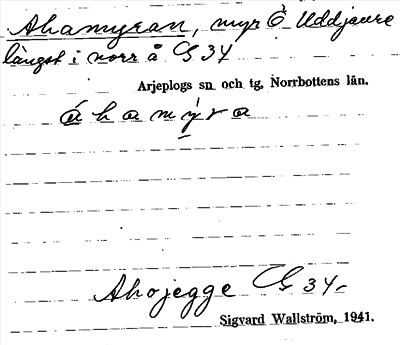 Ahamyran, myr Ö Uddjaure
längst i norr å G 34
Arjeplogs sn och tg, Norrbottens län.
áhamýra
Ahojegge G 34.
Sigvard Wallström, 1941.